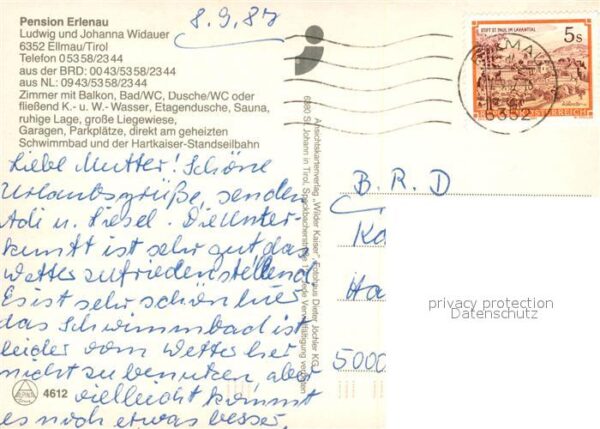 Pension Erlenau
Ludwig und Johanna Widauer
6352 Ellmau/Tirol
Telefon 0 53 58/23 44
aus der BRD: 00 43/53 58/23 44
aus NL: 09 43/53 58/23 44
Zimmer mit Balkon, Bad/WC, Dusche/WC oder
fließend K.- u. W.- Wasser, Etagendusche, Sauna,
ruhige Lage, große Liegewiese,
Garagen, Parkplätze, direkt am geheizten
Schwimmbad und der Hartkaiser-Standseilbahn
8.9.87
STIFT ST. PAUL IM LAVANTTAL
5 S
REPUBLIK ÖSTERREICH
6352
Liebe Mutter! Schöne
Urlaubsgrüße, senden
Adi u. Liesel. Die Unter-
kunft ist sehr gut das
Wetter zufriedenstellend
Es ist sehr schön hier
das Schwimmbad ist
leider vom Wetter her
nicht zu benutzen aber
vielleicht kommt
es noch etwas besser.
4612
Ansichtskartenverlag „Wilder Kaiser", Fotohaus Dieter Jöchler KG
6380 St. Johann in Tirol, Speckbacherstraße Jede Vervielfältigung verboten
B. R. D
Ka
Ha
5000
privacy protection
Datenschutz